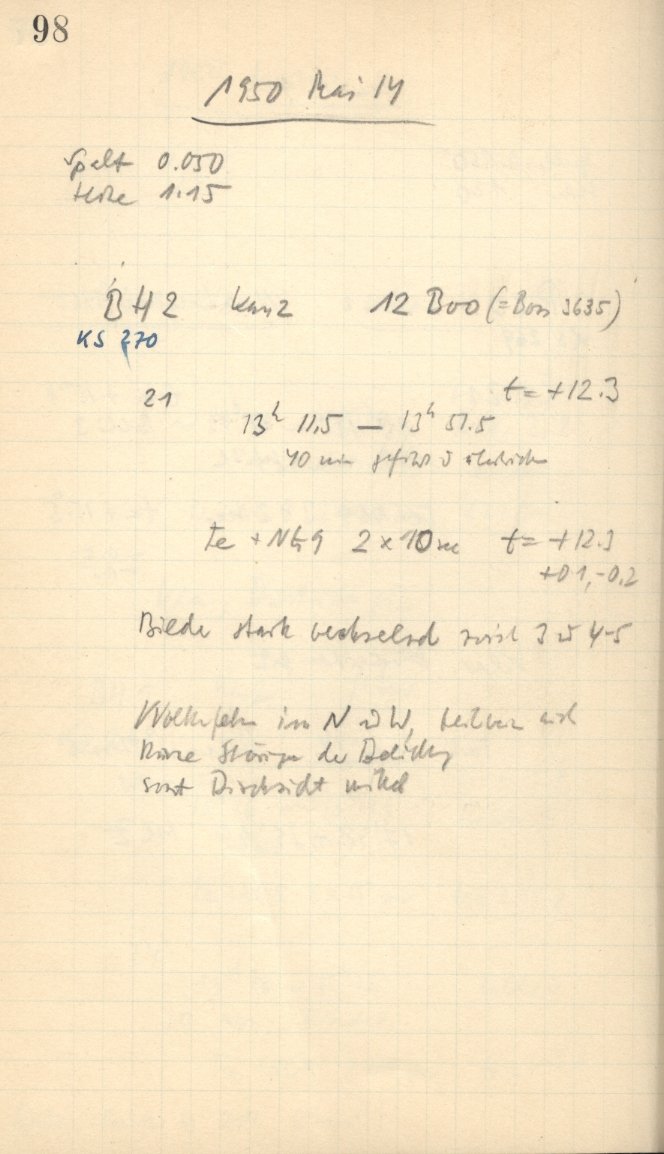 98
1950 Mai 14
Spalt 0.050
Höhe 1.15
B H 2 Kam 2 12 Boo (= Boss 3635)
KS 770
21 t = +12.3
13h 11.5 — 13h 51.5
40 min
Fe + 2 x 10 sec t = +12.3
+0.1, -0.2
Bilder stark wechselnd zwisch 3 u 4-5
Wolkenfelder im N u W, teilweise auch
kurze Störungen der Belichtg
sonst Durchsicht mittel